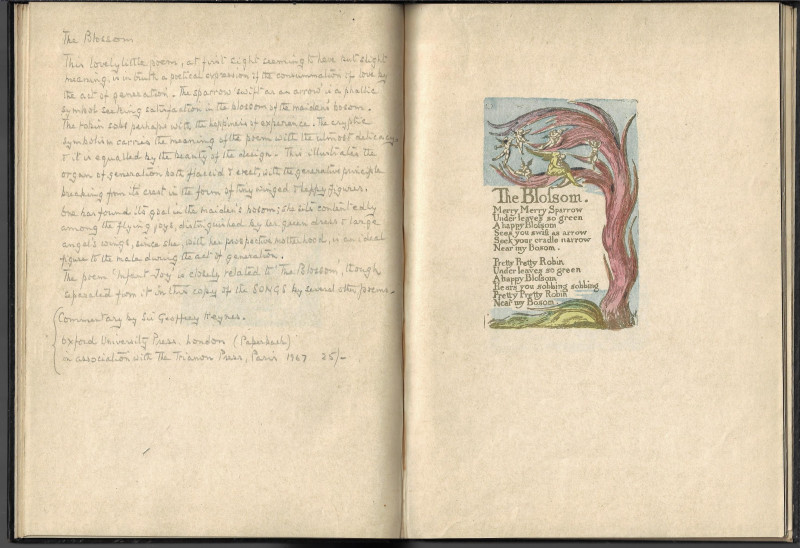 The Blossom
This lovely little poem, at first sight seeming to have but slight
meaning, is in truth a poetical expression of the consummation of love by
the act of generation. The sparrow swift as an arrow is a phallic
symbol seeking satisfaction in the blossom of the maiden's bosom.
The robin sobs perhaps with the happiness of experience. The cryptic
symbolism carries the meaning of the poem with the utmost delicacy,
& it is equalled by the beauty of the design. This illustrates the
organ of generation both flaccid & erect, with the generative principle
breaking from its crest in the form of tiny winged & happy figures.
One has found its goal in the maiden's bosom; she sits contentedly
among the flying joys, distinguished by her green dress & large
angel's wings, since she, with her prospective motherhood, is an ideal
figure to the male during the act of generation.
The poem 'Infant Joy' is closely related to 'The Blossom', though
separated from it in this copy of the SONGS by several other poems.
Commentary by Sir Geoffrey Keynes.
Oxford University Press. London (Paperback)
in association with The Trianon Press, Paris 1967 25/-
The Blossom.
Merry Merry Sparrow
Under leaves so green
A happy Blossom
Sees you swift as arrow
Seek your cradle narrow
Near my Bosom.
Pretty Pretty Robin
Under leaves so green
A happy Blossom
Hears you sobbing sobbing
Pretty Pretty Robin
Near my Bosom